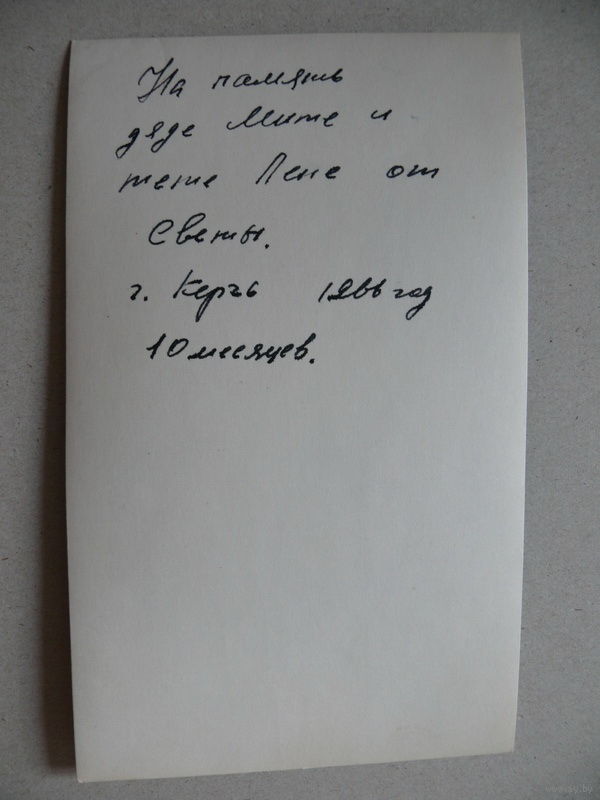 На память
дяде Мите и
тете Лене от
Светы.
г. Керчь 1966 год
10 месяцев.